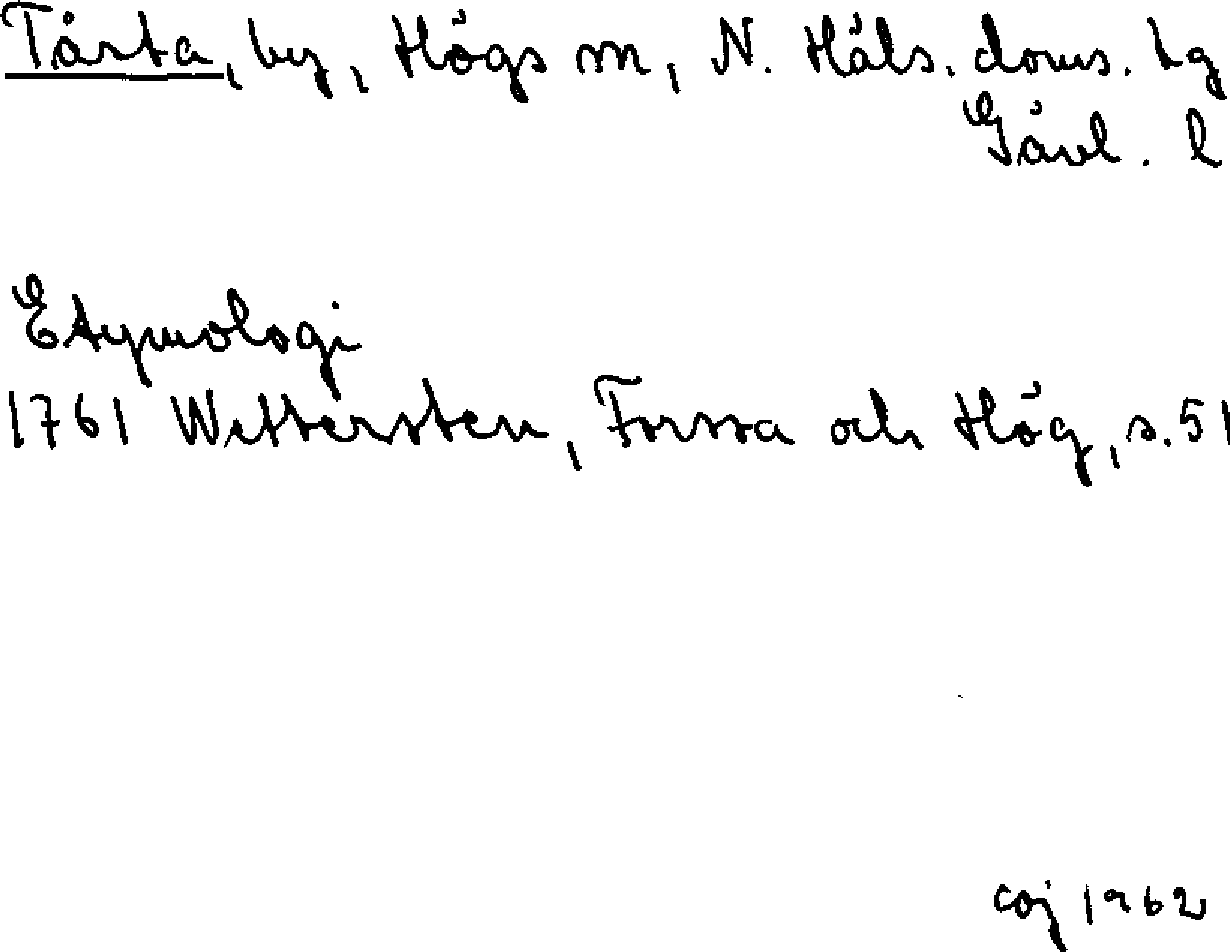 Tårta, by, Högs sn, N. Häls. doms. tg
Gävl. l
Etymologi
1761 Wettersten, Forssa och Hög, s. 51
coj 1962